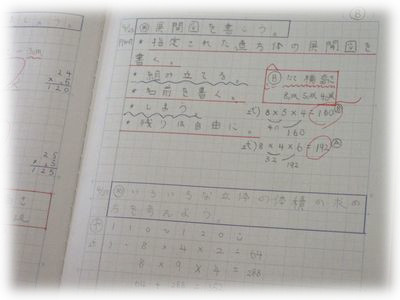 ⑧
㋱展開図を書こう。
• 指定された直方体の展開図を
書く。
• 組み立てる。
• 名前を書く。
• しまう
• 残りは自由に。
Ⓑ たて 横 高さ
8cm 5cm 4cm
式) 8 × 5 × 4 = 160 Ⓑ
40
160
式) 8 × 4 × 6 = 192 Ⓐ
32
192
いろいろな立体の体積の求め
方を考えよう。
1 - 8 × 4 × 2 = 64
8 × 9 × 4 = 288
24
× 5
120
25
× 5
125